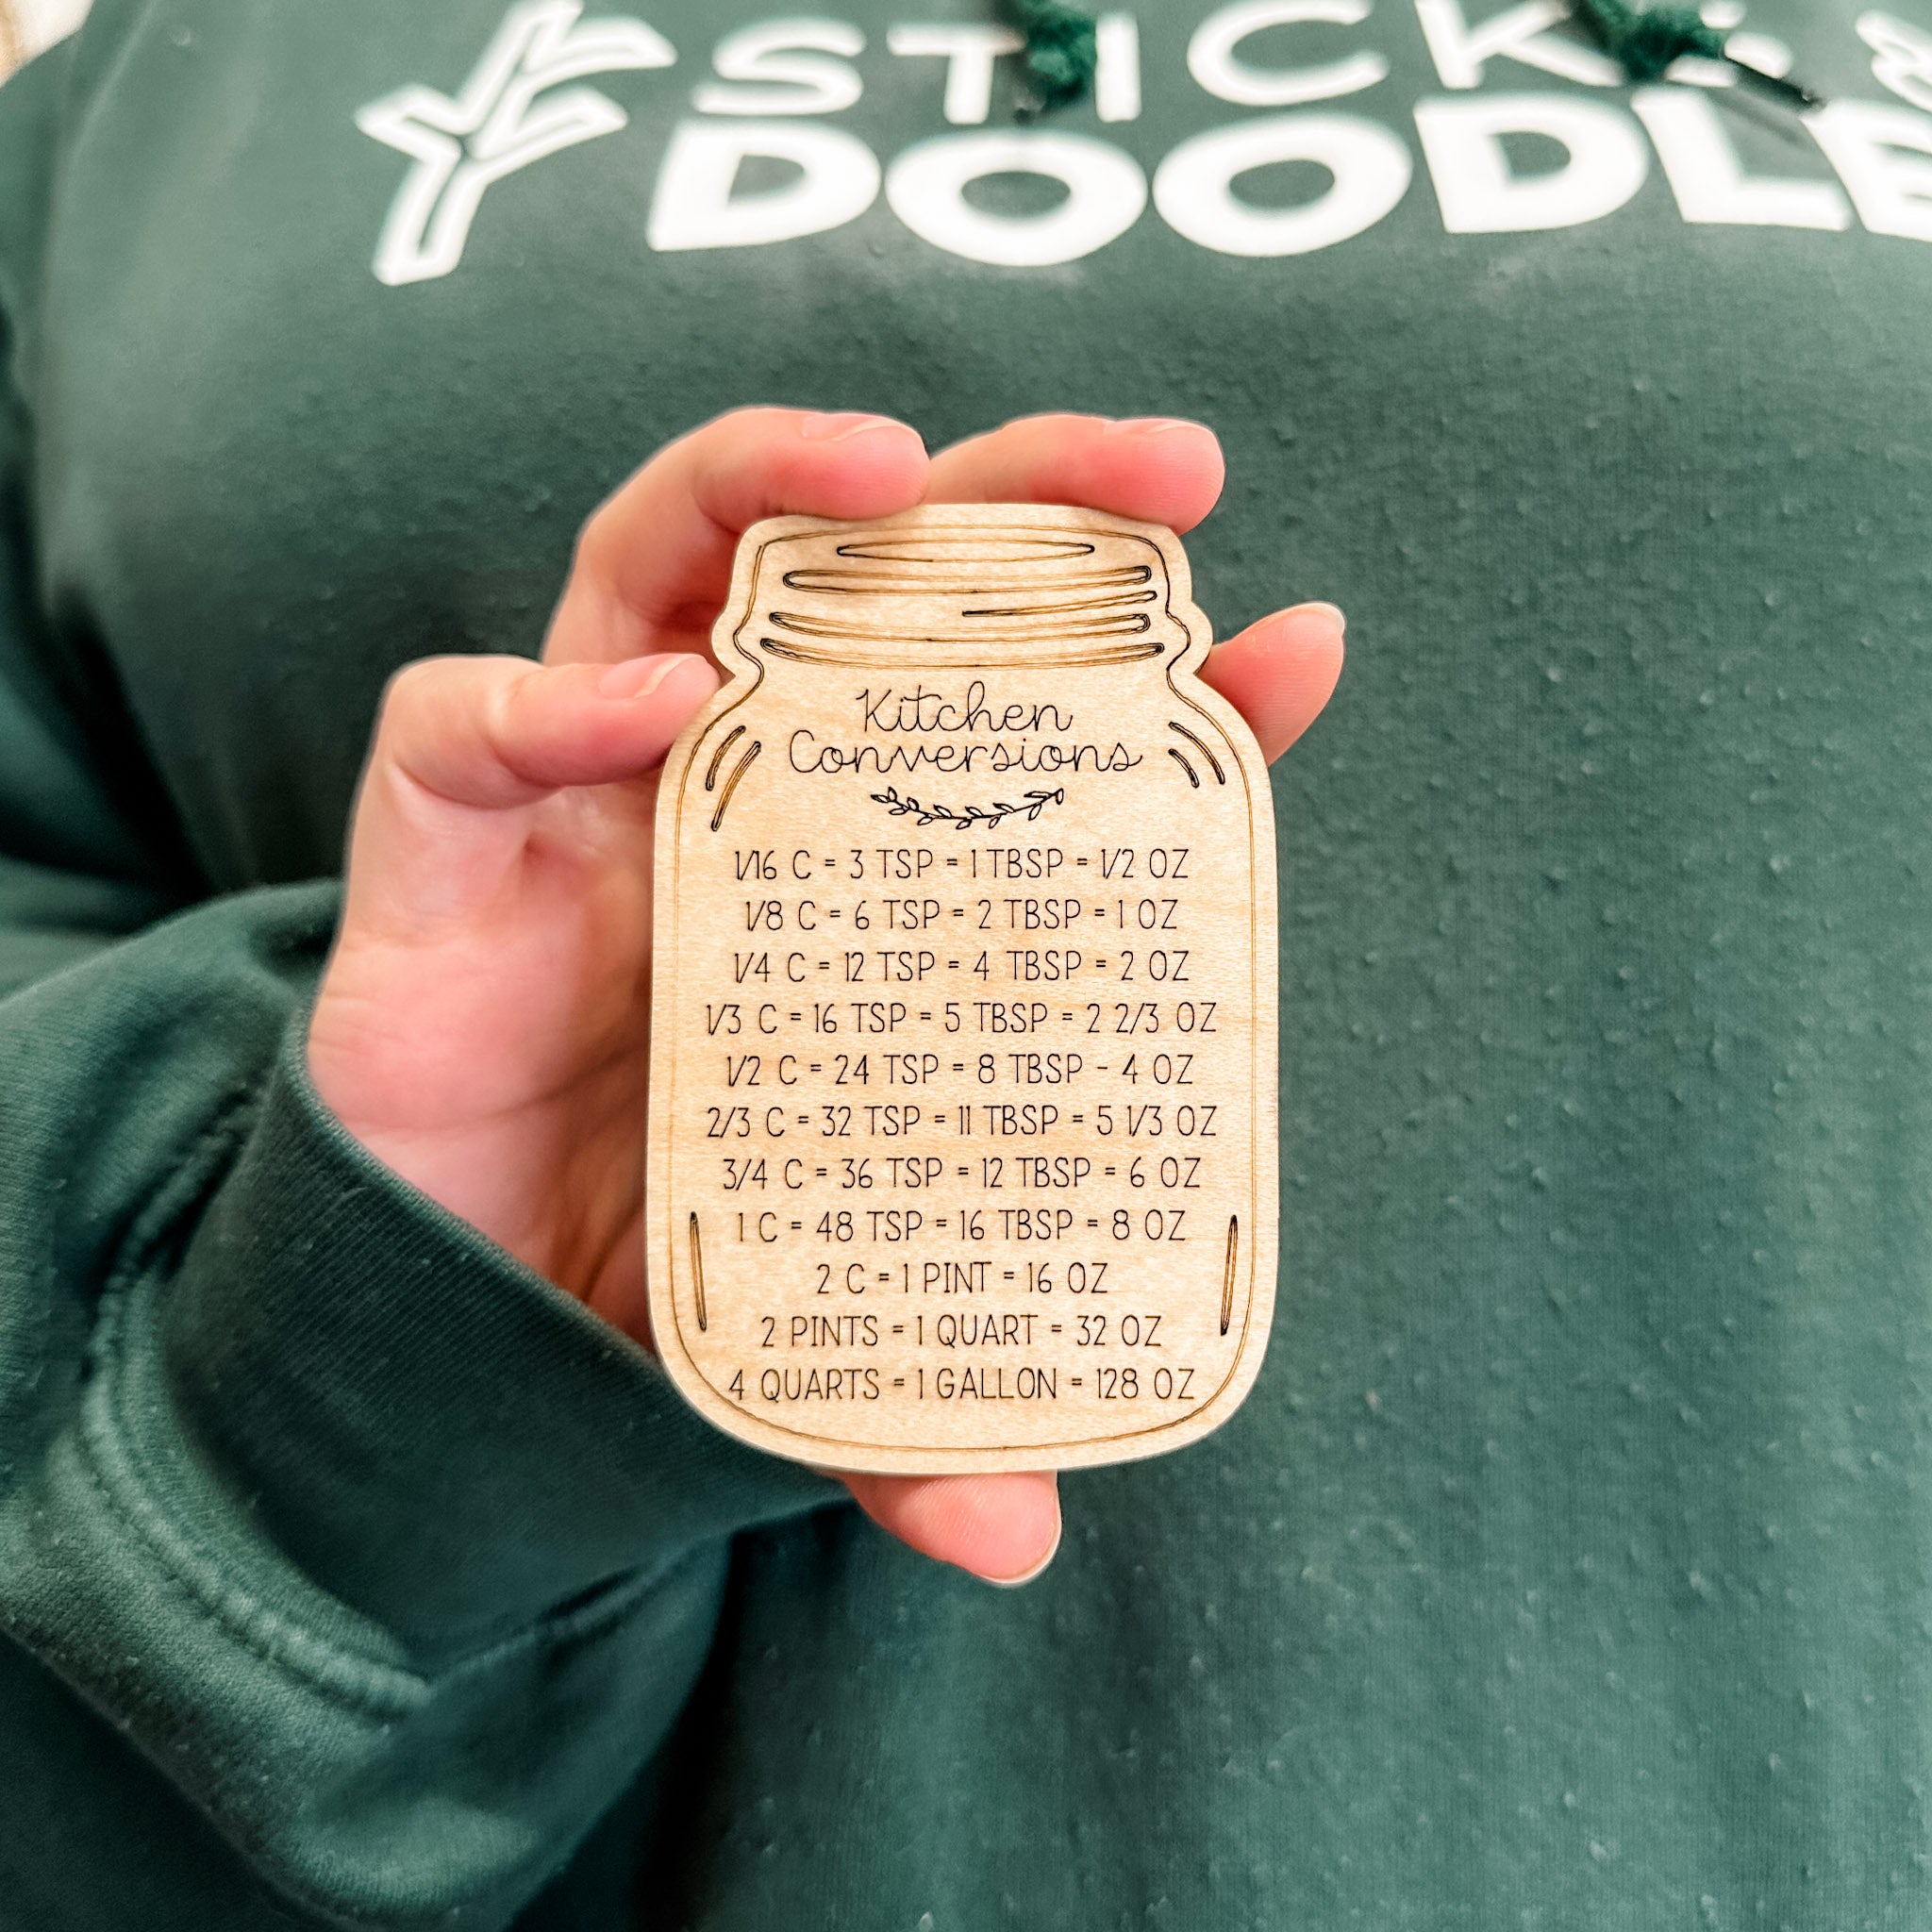 STICK &
DOODLE
Kitchen
Conversions
1/16 C = 3 TSP = 1 TBSP = 1/2 OZ
1/8 C = 6 TSP = 2 TBSP = 1 OZ
1/4 C = 12 TSP = 4 TBSP = 2 OZ
1/3 C = 16 TSP = 5 TBSP = 2 2/3 OZ
1/2 C = 24 TSP = 8 TBSP - 4 OZ
2/3 C = 32 TSP = 11 TBSP = 5 1/3 OZ
3/4 C = 36 TSP = 12 TBSP = 6 OZ
1 C = 48 TSP = 16 TBSP = 8 OZ
2 C = 1 PINT = 16 OZ
2 PINTS = 1 QUART = 32 OZ
4 QUARTS = 1 GALLON = 128 OZ